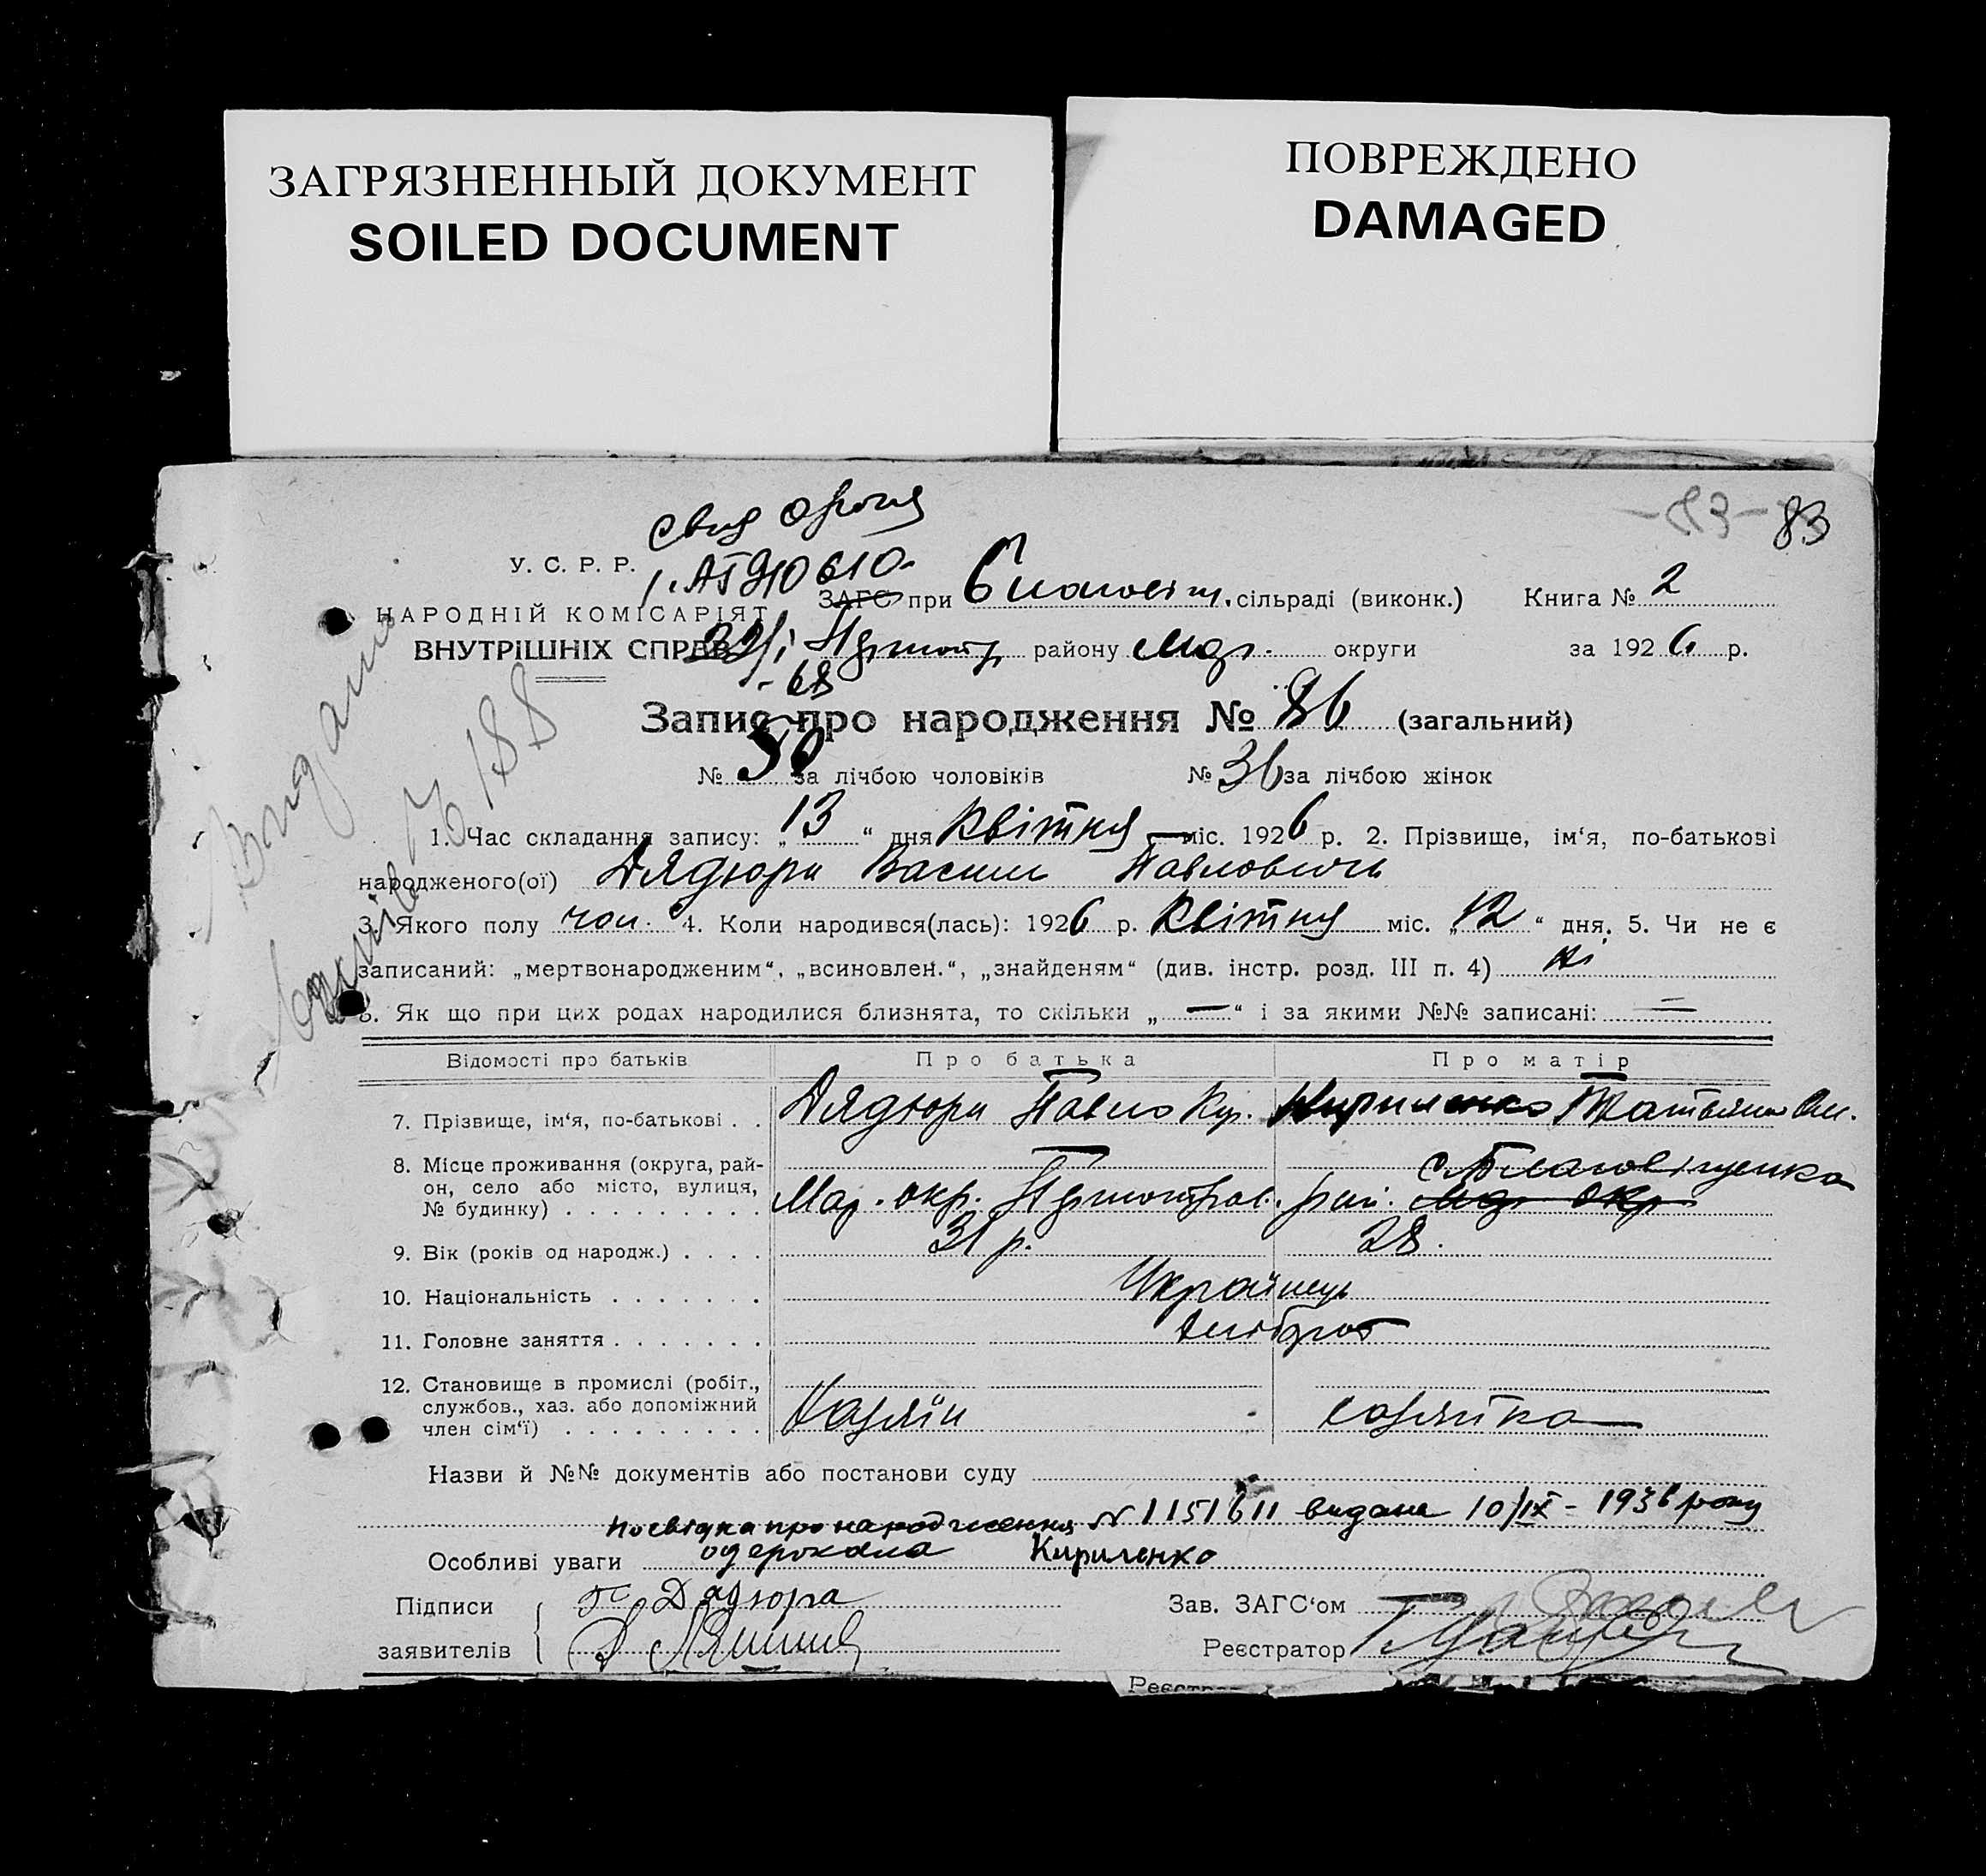 ЗАГРЯЗНЕННЫЙ ДОКУМЕНТ
SOILED DOCUMENT
ПОВРЕЖДЕНО
DAMAGED
-83- 83
У. С. Р. Р.
НАРОДНІЙ КОМІСАРІЯТ
ВНУТРІШНІХ СПРАВ
ЗАГС при сільраді (виконк.) Книга № 2
району округи за 1926 р.
68
Запис про народження № 86 (загальний)
№ 50 за лічбою чоловіків № 36 за лічбою жінок
1. Час складання запису: „13“ дня Квітня міс. 1926 р. 2. Прізвище, ім‘я, по-батькові
народженого(ої) Дядюра Василь Павлович
3. Якого полу чол. 4. Коли народився(лась): 1926 р. Квітня міс. „12“ дня. 5. Чи не є
записаний: „мертвонародженим“, „всиновлен.“, „знайденям“ (див. інстр. розд. III п. 4) ні
6. Як що при цих родах народилися близнята, то скільки „—“ і за якими №№ записані: —
Відомості про батьків Про батька Про матір
7. Прізвище, ім‘я, по-батькові . . Дядюра Павло Кир. Кириленко Татьяна Ол.
8. Місце проживання (округа, рай-
он, село або місто, вулиця,
№ будинку) . . . . . . . . . Мар. окр. рай.
9. Вік (років од народж.) . . . . 31 р. 28.
10. Національність . . . . . . . Українець
11. Головне заняття . . . . . . . хлібороб
12. Становище в промислі (робіт.,
службов., хаз. або допоміжний
член сім‘ї) . . . . . . . . . Хазяїн хазяйка
Назви й №№ документів або постанови суду
посвідка про народження № 1151611 видана 10/IX - 1936 року
Особливі уваги одержала Кириленко
Підписи
заявителів
П. Дядюра
Зав. ЗАГС‘ом
Реєстратор